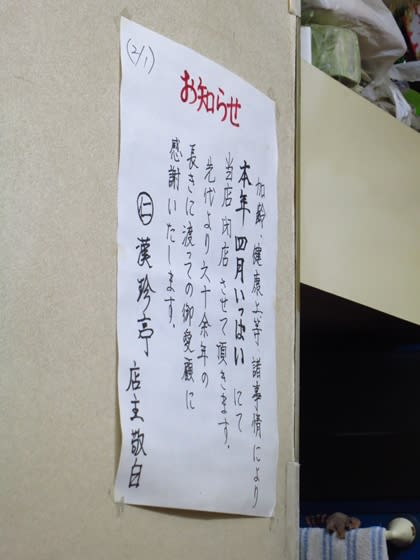 (2/1)
お知らせ
加齢 健康上等 諸事情により
本年 四月いっぱい にて
当店 閉店 させて 頂きます.
先代より六十余年の
長きに渡っての御愛顧に
感謝いたします.
㊁ 漢珍亭 店主敬白